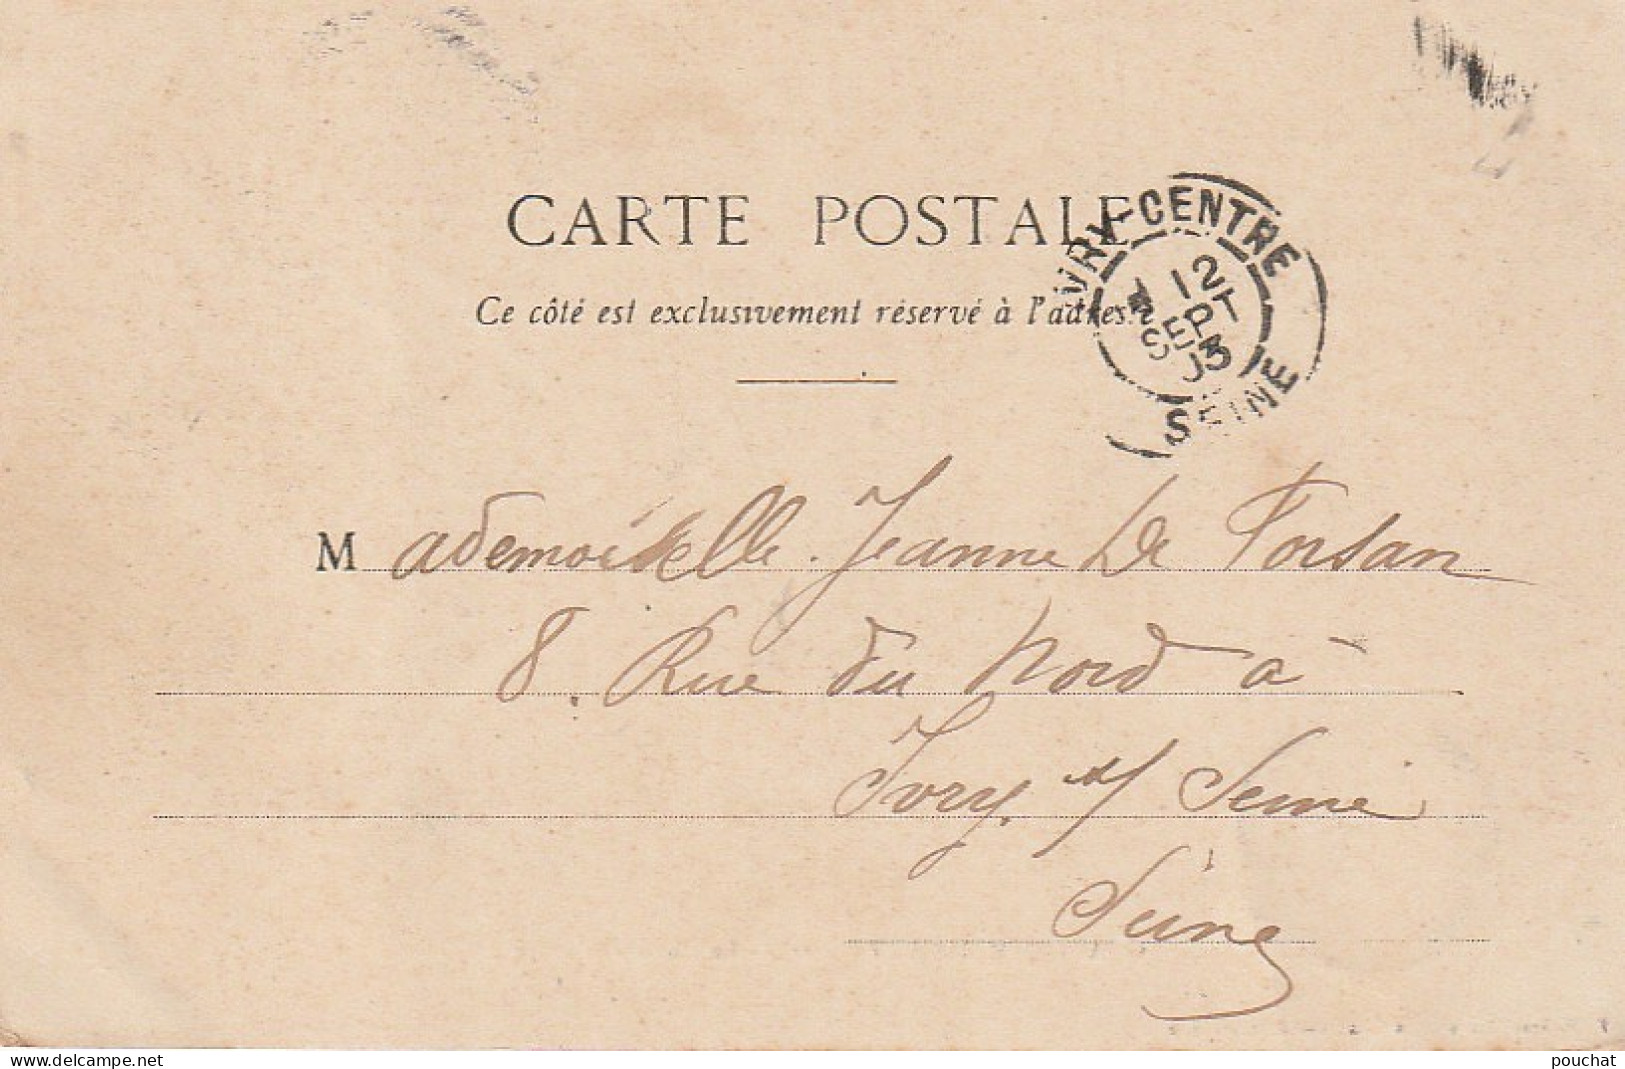 CARTE POSTALE
Ce côté est exclusivement réservé à l'adresse
IVRY-CENTRE
12
SEPT
03
SEINE
Mademoiselle Jeanne De Forsan
8. Rue du Nord à
Ivry s/ Seine
Seine
www.delcampe.net
pouchat